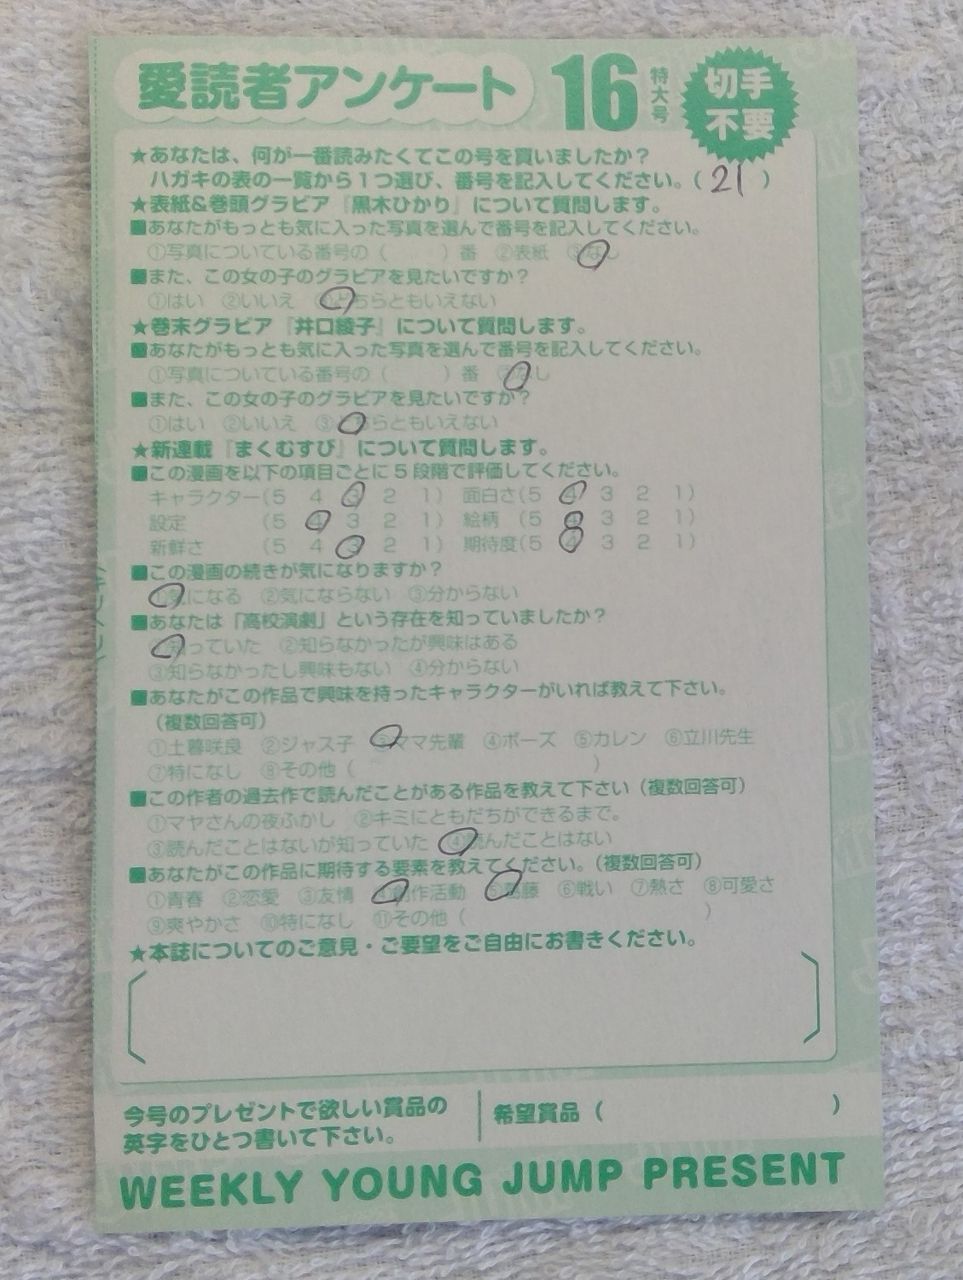 愛読者アンケート 16 特大号 切手不要
★あなたは、何が一番読みたくてこの号を買いましたか?
ハガキの表の一覧から1つ選び、番号を記入してください。( 21 )
★表紙&巻頭グラビア『黒木ひかり』について質問します。
■あなたがもっとも気に入った写真を選んで番号を記入してください。
①写真についている番号の( )番 ②表紙 ③なし
■また、この女の子のグラビアを見たいですか?
①はい ②いいえ ③どちらともいえない
★巻末グラビア『井口綾子』について質問します。
■あなたがもっとも気に入った写真を選んで番号を記入してください。
①写真についている番号の( )番 ②なし
■また、この女の子のグラビアを見たいですか?
①はい ②いいえ ③どちらともいえない
★新連載『まくむすび』について質問します。
■この漫画を以下の項目ごとに5段階で評価してください。
キャラクター(5 4 3 2 1) 面白さ(5 4 3 2 1)
設定 (5 4 3 2 1) 絵柄 (5 4 3 2 1)
新鮮さ (5 4 3 2 1) 期待度(5 4 3 2 1)
■この漫画の続きが気になりますか?
①気になる ②気にならない ③分からない
■あなたは「高校演劇」という存在を知っていましたか?
①知っていた ②知らなかったが興味はある
③知らなかったし興味もない ④分からない
■あなたがこの作品で興味を持ったキャラクターがいれば教えて下さい。
(複数回答可)
①土暮咲良 ②ジャス子 ③ママ先輩 ④ポーズ ⑤カレン ⑥立川先生
⑦特になし ⑧その他( )
■この作者の過去作で読んだことがある作品を教えて下さい(複数回答可)
①マヤさんの夜ふかし ②キミにともだちができるまで。
③読んだことはないが知っていた ④読んだことはない
■あなたがこの作品に期待する要素を教えてください。(複数回答可)
①青春 ②恋愛 ③友情 ④創作活動 ⑤葛藤 ⑥戦い ⑦熱さ ⑧可愛さ
⑨爽やかさ ⑩特になし ⑪その他( )
★本誌についてのご意見・ご要望をご自由にお書きください。
今号のプレゼントで欲しい賞品の
英字をひとつ書いて下さい。
希望賞品( )
WEEKLY YOUNG JUMP PRESENT